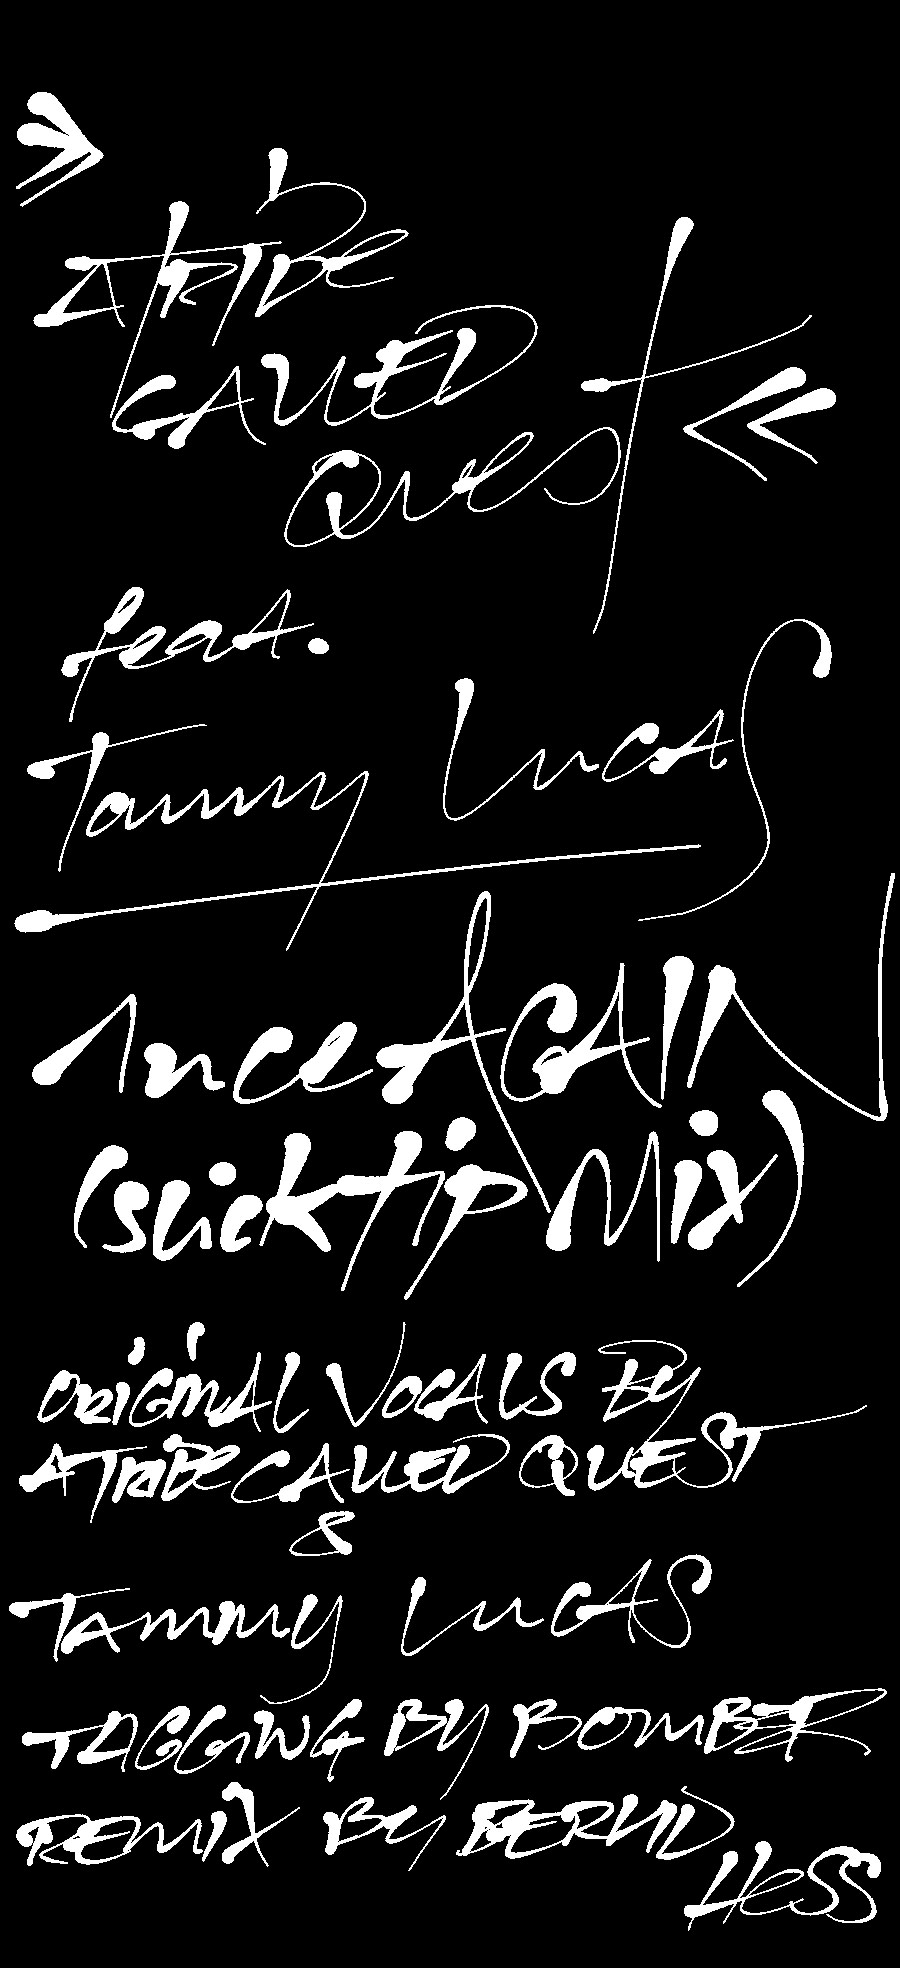 » A TRIBE
CALLED
QUEST «
feat.
Tammy Lucas
1nce AGAIN
(slick tip Mix)
ORIGINAL VOCALS BY
A TRIBE CALLED QUEST
&
TAMMY LUCAS
TAGGING BY BOMBER
REMIX BY BERND
HESS